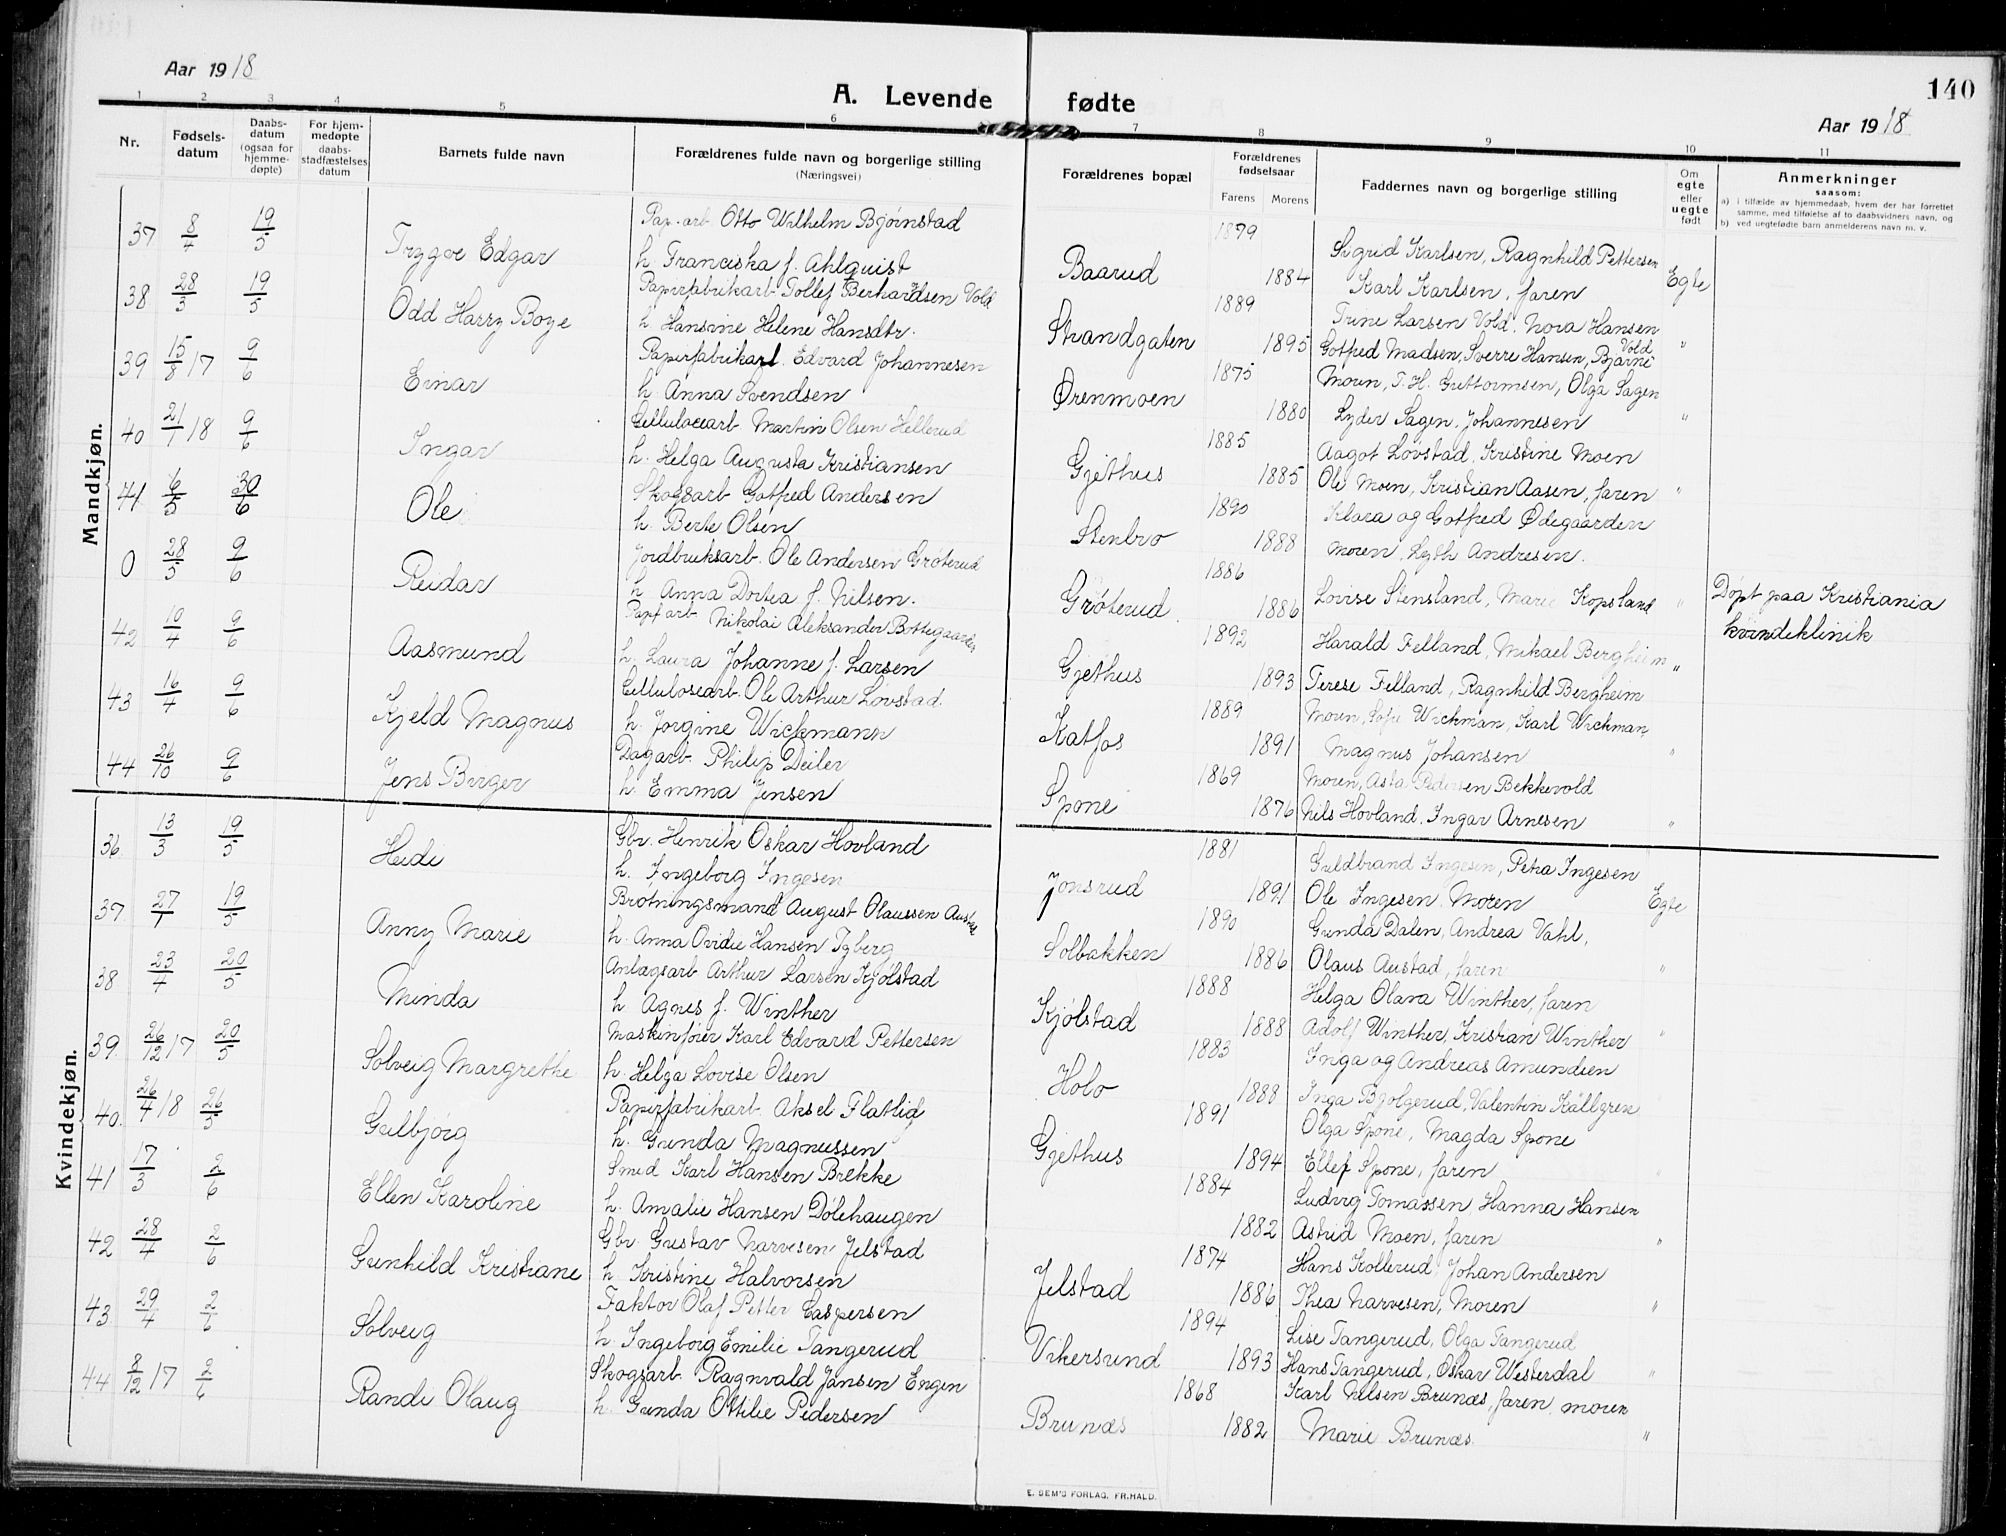 Aar 1918
A. Levende fødte
140
Aar 1918
1 2 3 4 5 6 7 8 9 10 11
Nr. | Fødsels-datum | Daabs-datum (ogsaa for hjemme-døpte) | For hjem-medøpte daabs-stadfæstelses datum | Barnets fulde navn | Forældrenes fulde navn og borgerlige stilling (Næringsvei) | Forældrenes bopæl | Forældrenes fødselsaar Farens Morens | Faddernes navn og borgerlige stilling | Om egte eller uegte født | Anmerkninger saasom: a) i tilfælde av hjemmedaab, hvem der har forrettet samme, med tilføielse af to daabsvidners navn, og b) ved uegtefødte barn anmelderens navn m. v.
Mandkjøn.
37 8/4 19/5 Trygve Edgar Pap.arb. Otto Wilhelm Bjørnstad Baarud 1879 Sigrid Karlsen, Ragnhild Pettersen Egte
h. Franciska f. Ahlquist 1884 Karl Karlsen, faren
38 28/3 19/5 Odd Harry Boye Papirfabrikarb. Tollef Berhardsen Vold Strandgaten 1889 Trine Larsen Vold, Nora Hansen
h. Hansine Helene Hansdtr. 1895 Gotfred Madsen, Sverre Hansen, Bjarne Vold "
39 15/8 17 9/6 Einar Papirfabrikarb. Edvard Johannesen Ørenmoen 1875 Moren, T. H. Guttormsen, Olga Sagen
h. Anna Svendsen 1880 Lyder Sagen, Johannesen "
40 21/1 18 9/6 Ingar Cellulosearb. Martin Olsen Hellerud Gjethus 1885 Aagot Lovstad, Kristine Moen
h. Helga Augusta Kristiansen 1885 Ole Moen, Kristian Aasen, faren "
41 6/5 30/6 Ole Skogsarb. Gotfred Andersen Stenbro 1890 Klara og Gotfred Ødegaarden
h. Berte Olsen 1888 Moren, Lyth Andresen.
0 28/5 9/6 Reidar Jordbruksarb. Ole Andersen Grøterud Grøterud. 1886 Lovise Stensland, Marie Kopsland " Døpt paa Kristiania
h. Anna Dortea f. Nilsen. 1886 kvindeklinik
42 10/4 9/6 Aasmund Papf.arb. Nikolai Aleksander Bottegaarden Gjethus 1892 Harald Felland, Mikael Bergheim "
h. Laura Johanne f. Larsen 1893 Terese Felland, Ragnhild Bergheim
43 16/4 9/6 Kjeld Magnus Cellulosearb. Ole Arthur Lovstad. Katfos 1889 Moren, Sofie Wickman, Karl Wickman,
h. Jorgine Wickmann 1891 Magnus Johansen "
44 26/10 9/6 Jens Birger Dagarb. Philip Deiler Spone 1869 Moren, Asta Pedersen Bekkevold
h. Emma Jensen 1876 Nils Hovland, Ingar Arnesen "
Kvindekjøn.
36 13/3 19/5 Heidi Gbr. Henrik Oskar Hovland Jonsrud 1881 Guldbrand Ingesen, Petra Ingesen
h. Ingeborg Ingesen 1891 Ole Ingesen, Moren Egte
37. 27/1 19/5 Anny Marie Brøtningsmand August Olaussen Austad Solbakken 1890 Gunda Dalen, Andrea Vahl,
h. Anna Ovidie Hansen Tyberg 1886 Olaus Austad, faren "
38 23/4 20/5 Minda Anlægsarb. Arthur Larsen Kjølstad Kjølstad 1888 Helga Olava Winther, faren
h. Agnes f. Winther 1888 Adolf Winther, Kristian Winther "
39. 26/12 17 20/5 Solveig Margrethe Maskinfører Karl Edvard Pettersen Holo 1883 Inga og Andreas Amundsen
h. Helga Lovise Olsen 1888 Inga Bjølgerud, Valentin Källgren
40. 26/4 18 26/5 Gulbjørg Papirfabrikarb. Aksel Flatlid Gjethus 1891 Olga Spone, Magda Spone
h. Gunda Magnussen 1894 Ellef Spone, faren
41 17/3 2/6 Ellen Karoline Smed Karl Hansen Brekke 1884 Ludvig Tomassen, Hanna Hansen
h. Amalie Hansen Dølehaugen 1882 Astrid Moen, faren "
42 28/4 2/6 Gunhild Kristiane Gbr. Gustav Narvesen Jelstad Jelstad 1874 Hans Kollerud, Johan Andersen
h. Kristine Halvorsen 1886 Thea Narvesen, Moren "
43 29/4 2/6 Solveig Faktor Olaf Petter Caspersen Vikersund 1894 Lise Tangerud, Olga Tangerud
h. Ingeborg Emilie Tangerud 1893 Hans Tangerud, Oskar Westerdal "
44 8/12 17 2/6 Randi Olaug Skogsarb. Ragnvald Jansen Engen Brunæs 1868 Karl Nilsen Brunæs, faren, moren
h. Gunda Ottilie Pedersen 1882 Marie Brunæs. "
E. SEM'S FORLAG, FR.HALD.